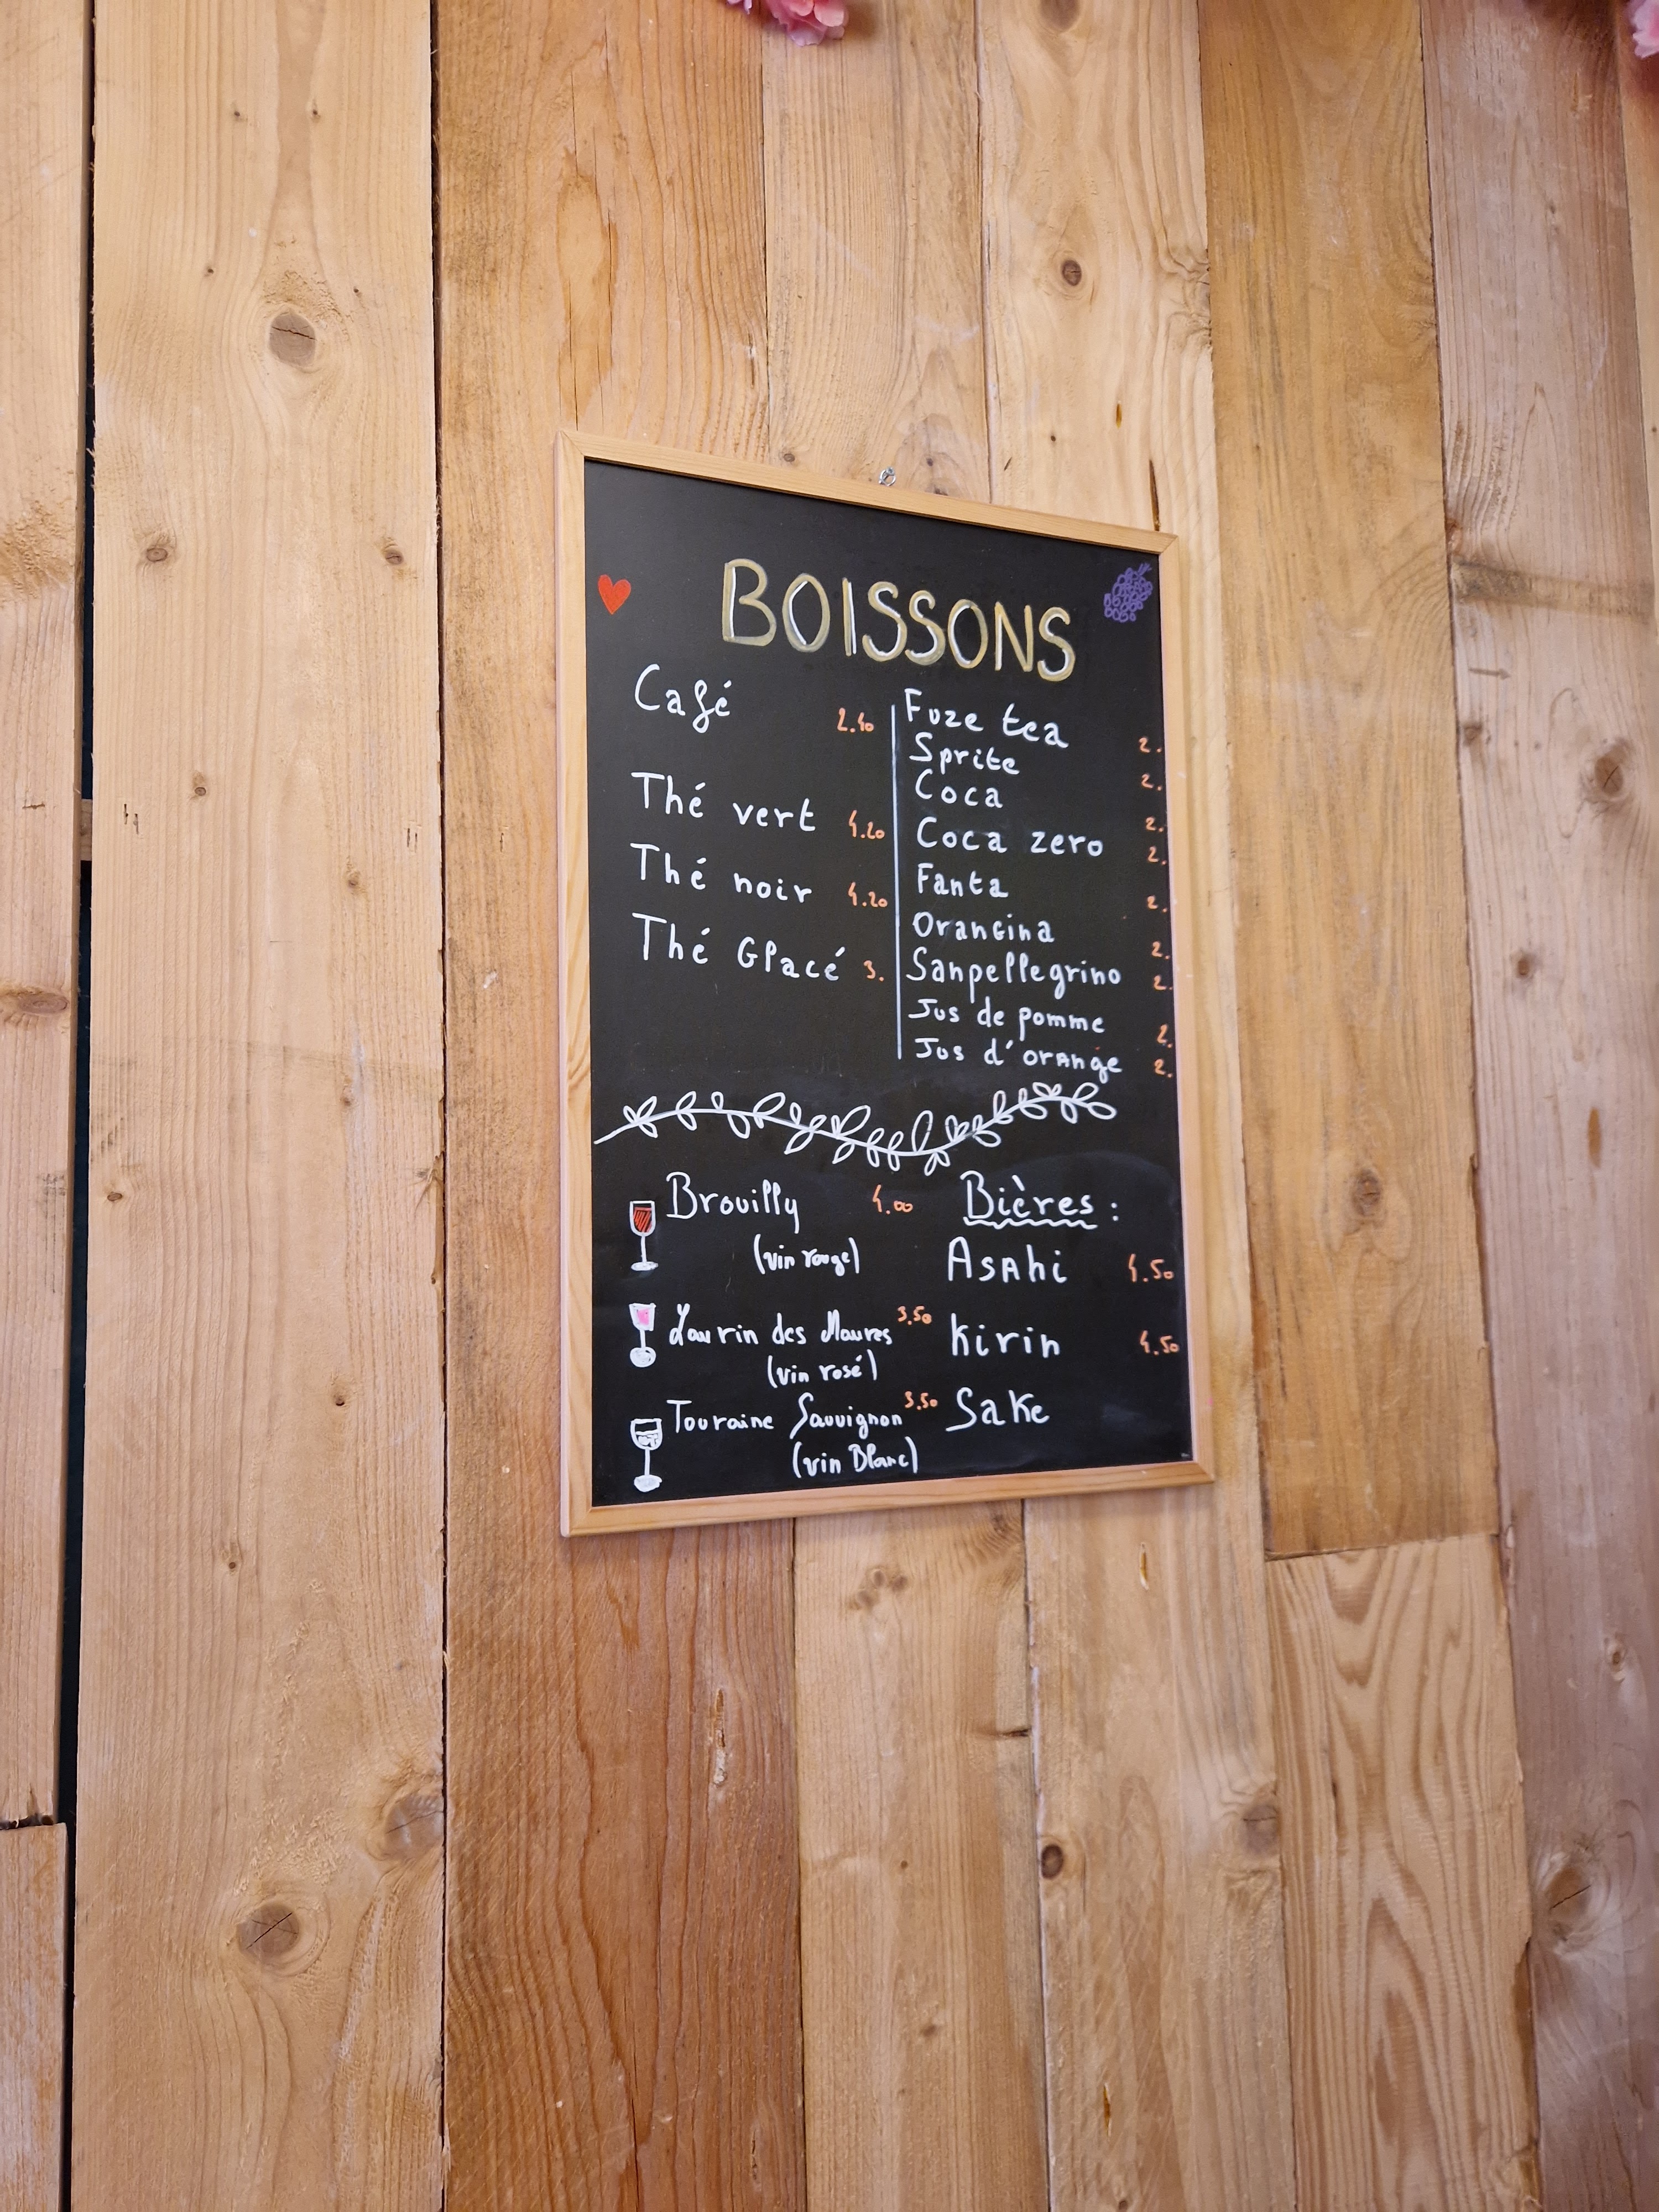 BOISSONS
Café 2.40
Thé vert 4.20
Thé noir 4.20
Thé Glacé 3.
Fuze tea 2.
Sprite 2.
Coca 2.
Coca zero 2.
Fanta 2.
Orangina 2.
Sanpellegrino 2.
Jus de pomme 2.
Jus d'orange 2.
Brouilly 4.00
(vin rouge)
Laurin des Maures 3.50
(vin rosé)
Touraine Sauvignon 3.50
(vin Blanc)
Bières :
Asahi 4.50
Kirin 4.50
Sake